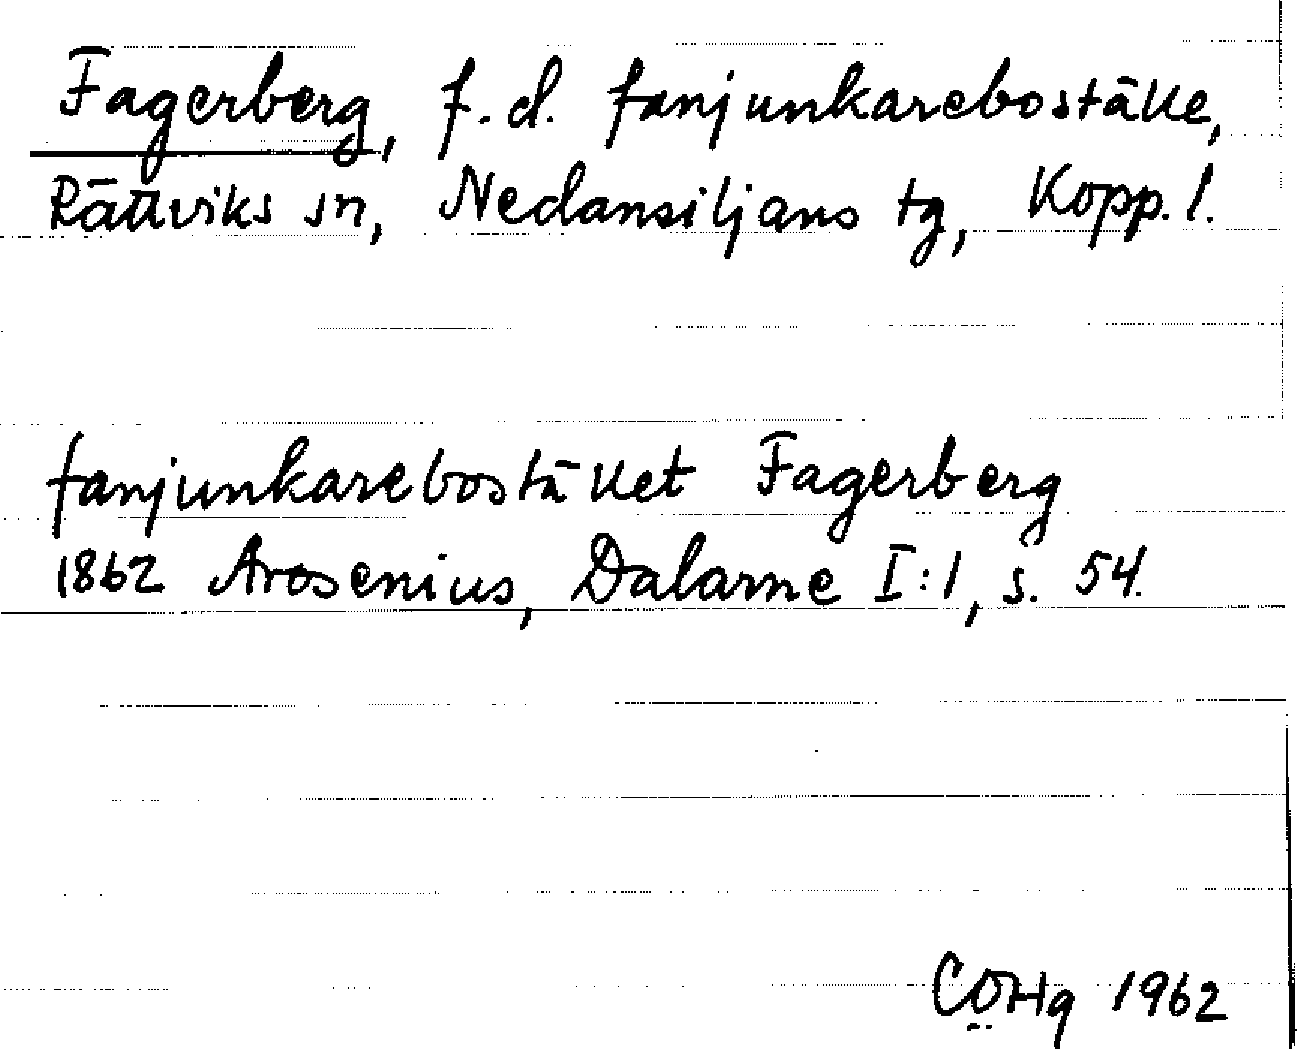 Fagerberg, f.d. fanjunkareboställe,
Rättviks sn, Nedansiljans tg, Kopp. l.
fanjunkarebostället Fagerberg
1862 Arosenius, Dalarne I:1, s. 54.
COHg 1962